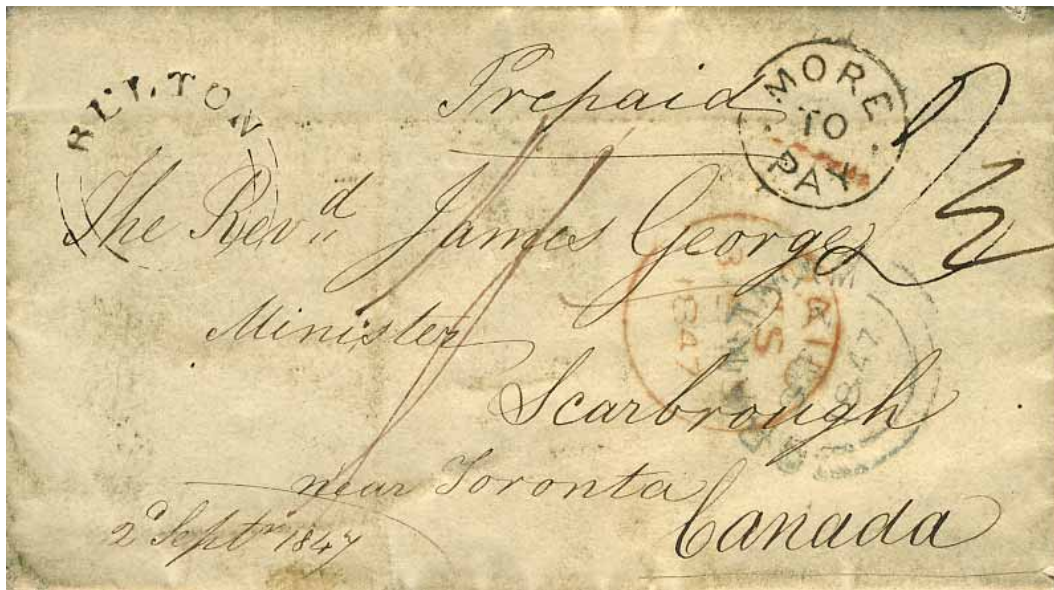 Prepaid
RULTON
MORE
TO
PAY
The Rev.d James George
Minister
Scarbrough
near Toronta
Canada
2d Septr 1847
1847